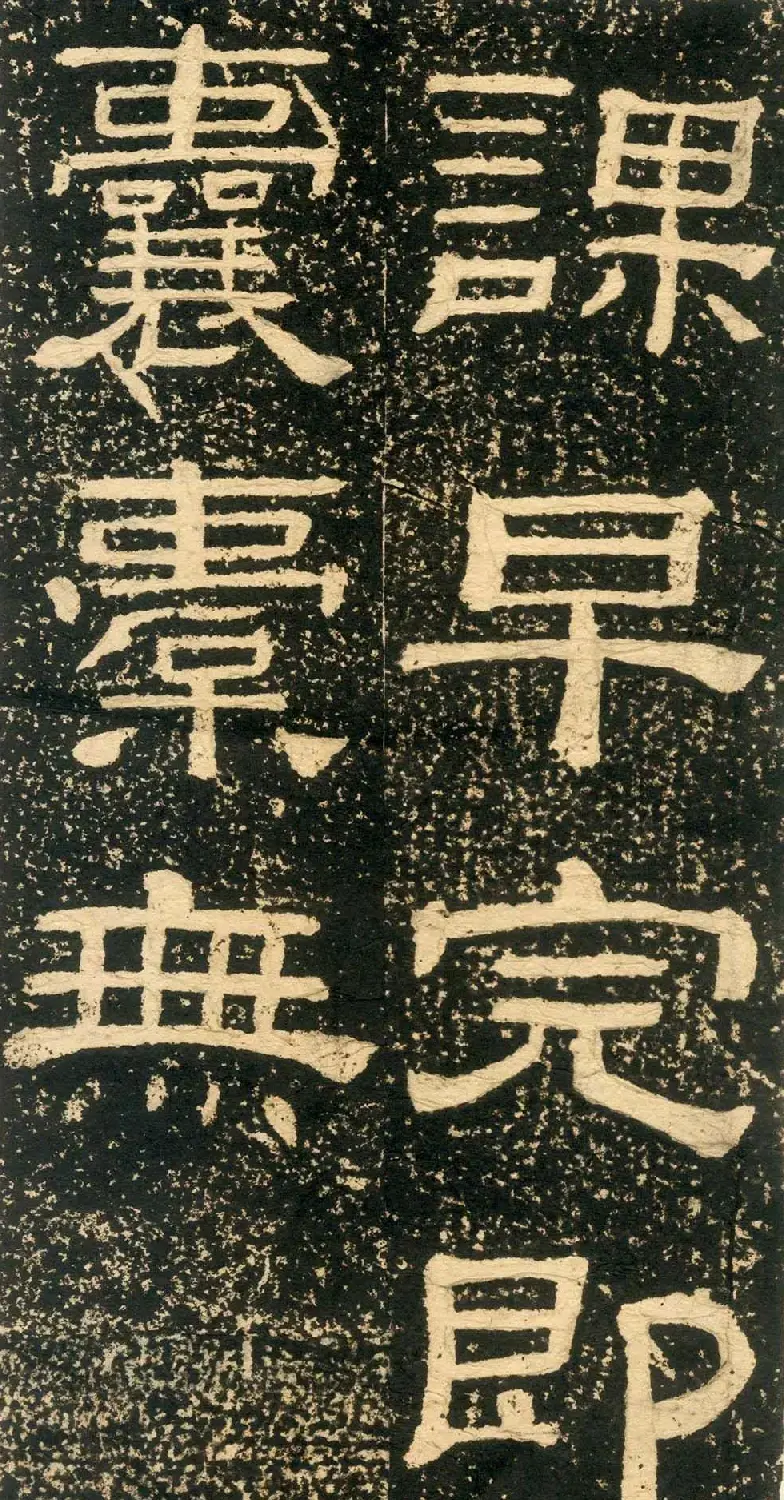 課早完即
囊橐無